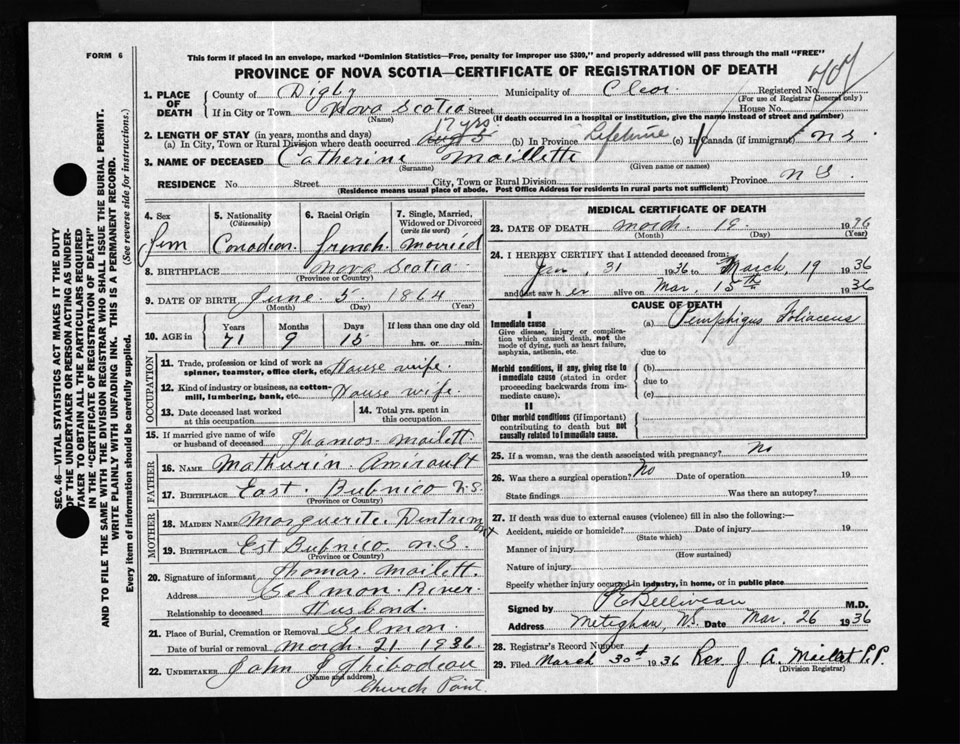 FORM 6
This form if placed in an envelope, marked "Dominion Statistics—Free, penalty for improper use $300," and properly addressed will pass through the mail "FREE"
PROVINCE OF NOVA SCOTIA—CERTIFICATE OF REGISTRATION OF DEATH
1. PLACE OF DEATH
County of Digby Municipality of Clare Registered No. 707
(For use of Registrar General only)
If in City or Town Nova Scotia Street House No.
(Name) (If death occurred in a hospital or institution, give the name instead of street and number)
17 yrs.
2. LENGTH OF STAY (in years, months and days)
(a) In City, Town or Rural Division where death occurred (b) In Province Lifetime (c) In Canada (if immigrant) n s
3. NAME OF DECEASED Catherine Maillette
(Surname) (Given name or names)
RESIDENCE No. Street City, Town or Rural Division Province N S.
(Residence means usual place of abode. Post Office Address for residents in rural parts not sufficient)
4. Sex
Fem
5. Nationality
(Citizenship)
Canadian
6. Racial Origin
french
7. Single, Married, Widowed or Divorced
(write the word)
Married
8. BIRTHPLACE Nova Scotia
(Province or Country)
9. DATE OF BIRTH June 5 1864
(Month) (Day) (Year)
10. AGE in
Years Months Days If less than one day old
71 9 15 hrs. or min.
OCCUPATION
11. Trade, profession or kind of work as
spinner, teamster, office clerk, etc. House wife.
12. Kind of industry or business, as cotton-
mill, lumbering, bank, etc. House wife.
13. Date deceased last worked
at this occupation
14. Total yrs. spent in
this occupation
15. If married give name of wife
or husband of deceased Thomas Mailett
FATHER
16. NAME Mathurin Amirault
17. BIRTHPLACE East Bubnico N.S.
(Province or Country)
MOTHER
18. MAIDEN NAME Marguerite Dentremont
19. BIRTHPLACE Est Bubnico N.S.
(Province or Country)
20. Signature of informant Thomas Mailett.
Address Selmon River
Relationship to deceased Husband.
21. Place of Burial, Cremation or Removal Selmon.
Date of burial or removal March 21 1936.
22. UNDERTAKER John J Thibodeau
(Name and address)
Church Point.
MEDICAL CERTIFICATE OF DEATH
23. DATE OF DEATH March 19. 1936
(Month) (Day) (Year)
24. I HEREBY CERTIFY that I attended deceased from:
Jan, 31 1936 to March, 19 1936
and last saw h er alive on Mar. 15th 1936
CAUSE OF DEATH
I
Immediate cause
Give disease, injury or complica-
tion which caused death, not the
mode of dying, such as heart failure,
asphyxia, asthenia, etc.
(a) Pemphigus Foliaceus
due to
Morbid conditions, if any, giving rise to
immediate cause (stated in order
proceeding backwards from im-
mediate cause).
(b)
due to
(c)
II
Other morbid conditions (if important)
contributing to death but not
causally related to immediate cause.
25. If a woman, was the death associated with pregnancy? No
26. Was there a surgical operation? No Date of operation 19
State findings Was there an autopsy?
27. If death was due to external causes (violence) fill in also the following:—
Accident, suicide or homicide? Date of injury 19
(State which)
Manner of injury
(How sustained)
Nature of injury
Specify whether injury occurred in industry, in home, or in public place
Signed by P E Belliveau M.D.
Address Meteghan, N.S. Date Mar. 26 1936
28. Registrar's Record Number
29. Filed March 30th 1936 Rev. J. A. Mailet P.P.
(Division Registrar)
SEC. 46—VITAL STATISTICS ACT MAKES IT THE DUTY
OF THE UNDERTAKER OR PERSON ACTING AS UNDER-
TAKER TO OBTAIN ALL THE PARTICULARS REQUIRED
IN THE "CERTIFICATE OF REGISTRATION OF DEATH"
AND TO FILE THE SAME WITH THE DIVISION REGISTRAR WHO SHALL ISSUE THE BURIAL PERMIT.
WRITE PLAINLY WITH UNFADING INK. THIS IS A PERMANENT RECORD.
Every item of information should be carefully supplied. (See reverse side for instructions.)